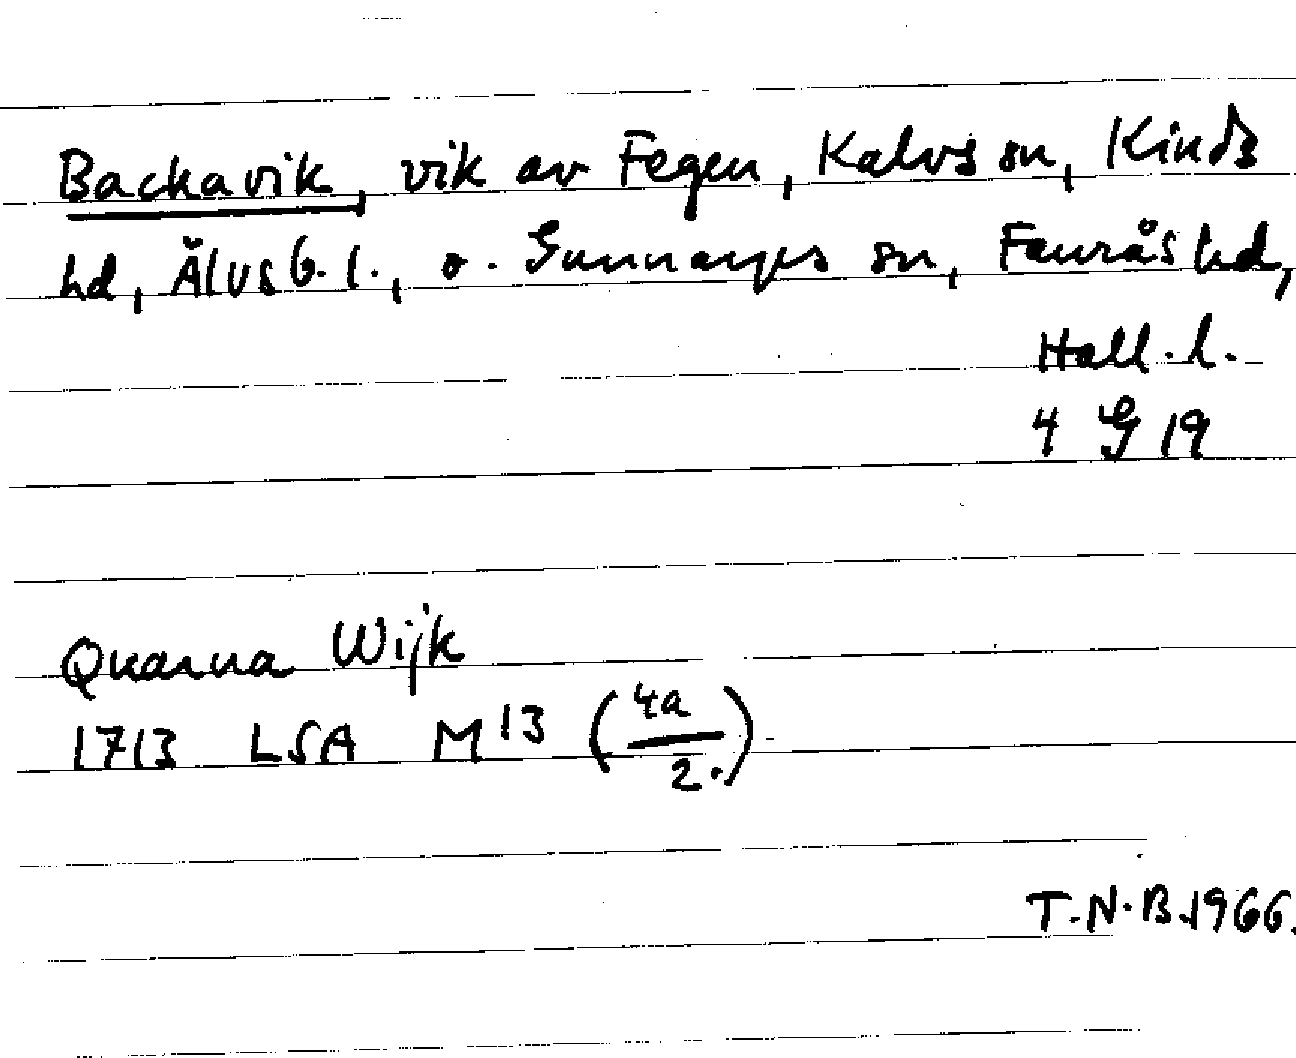 Backavik, vik av Fegen, Kalvs sn, Kinds
hd, Älvsb. l., o. Gunnarps sn, Faurås hd,
Hall. l.
4 G 19
Quarna Wijk
1713 LSA M13 (4a/2.)
T.N.B.1966.